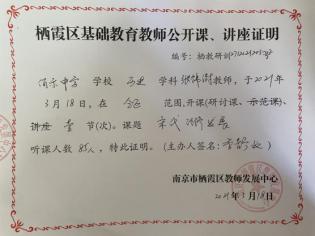 栖霞区基础教育教师公开课、讲座证明
编号：栖教研训
学校 历史 学科 教师，于2021年
3月18日，在 全区 范围，开课(研讨课、示范课)、
讲座 壹 节(次)。课题 宋代
听课人数 85人，特此证明。(主办人签名：
南京市栖霞区教师发展中心
2021年3月18日